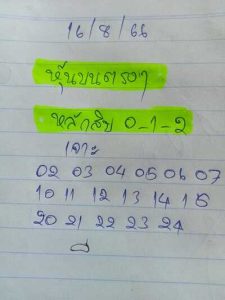 16/8/66
หุ้นบนตรงๆ
หลักสิบ 0-1-2
เจาะ
02 03 04 05 06 07
10 11 12 13 14 15
20 21 22 23 24